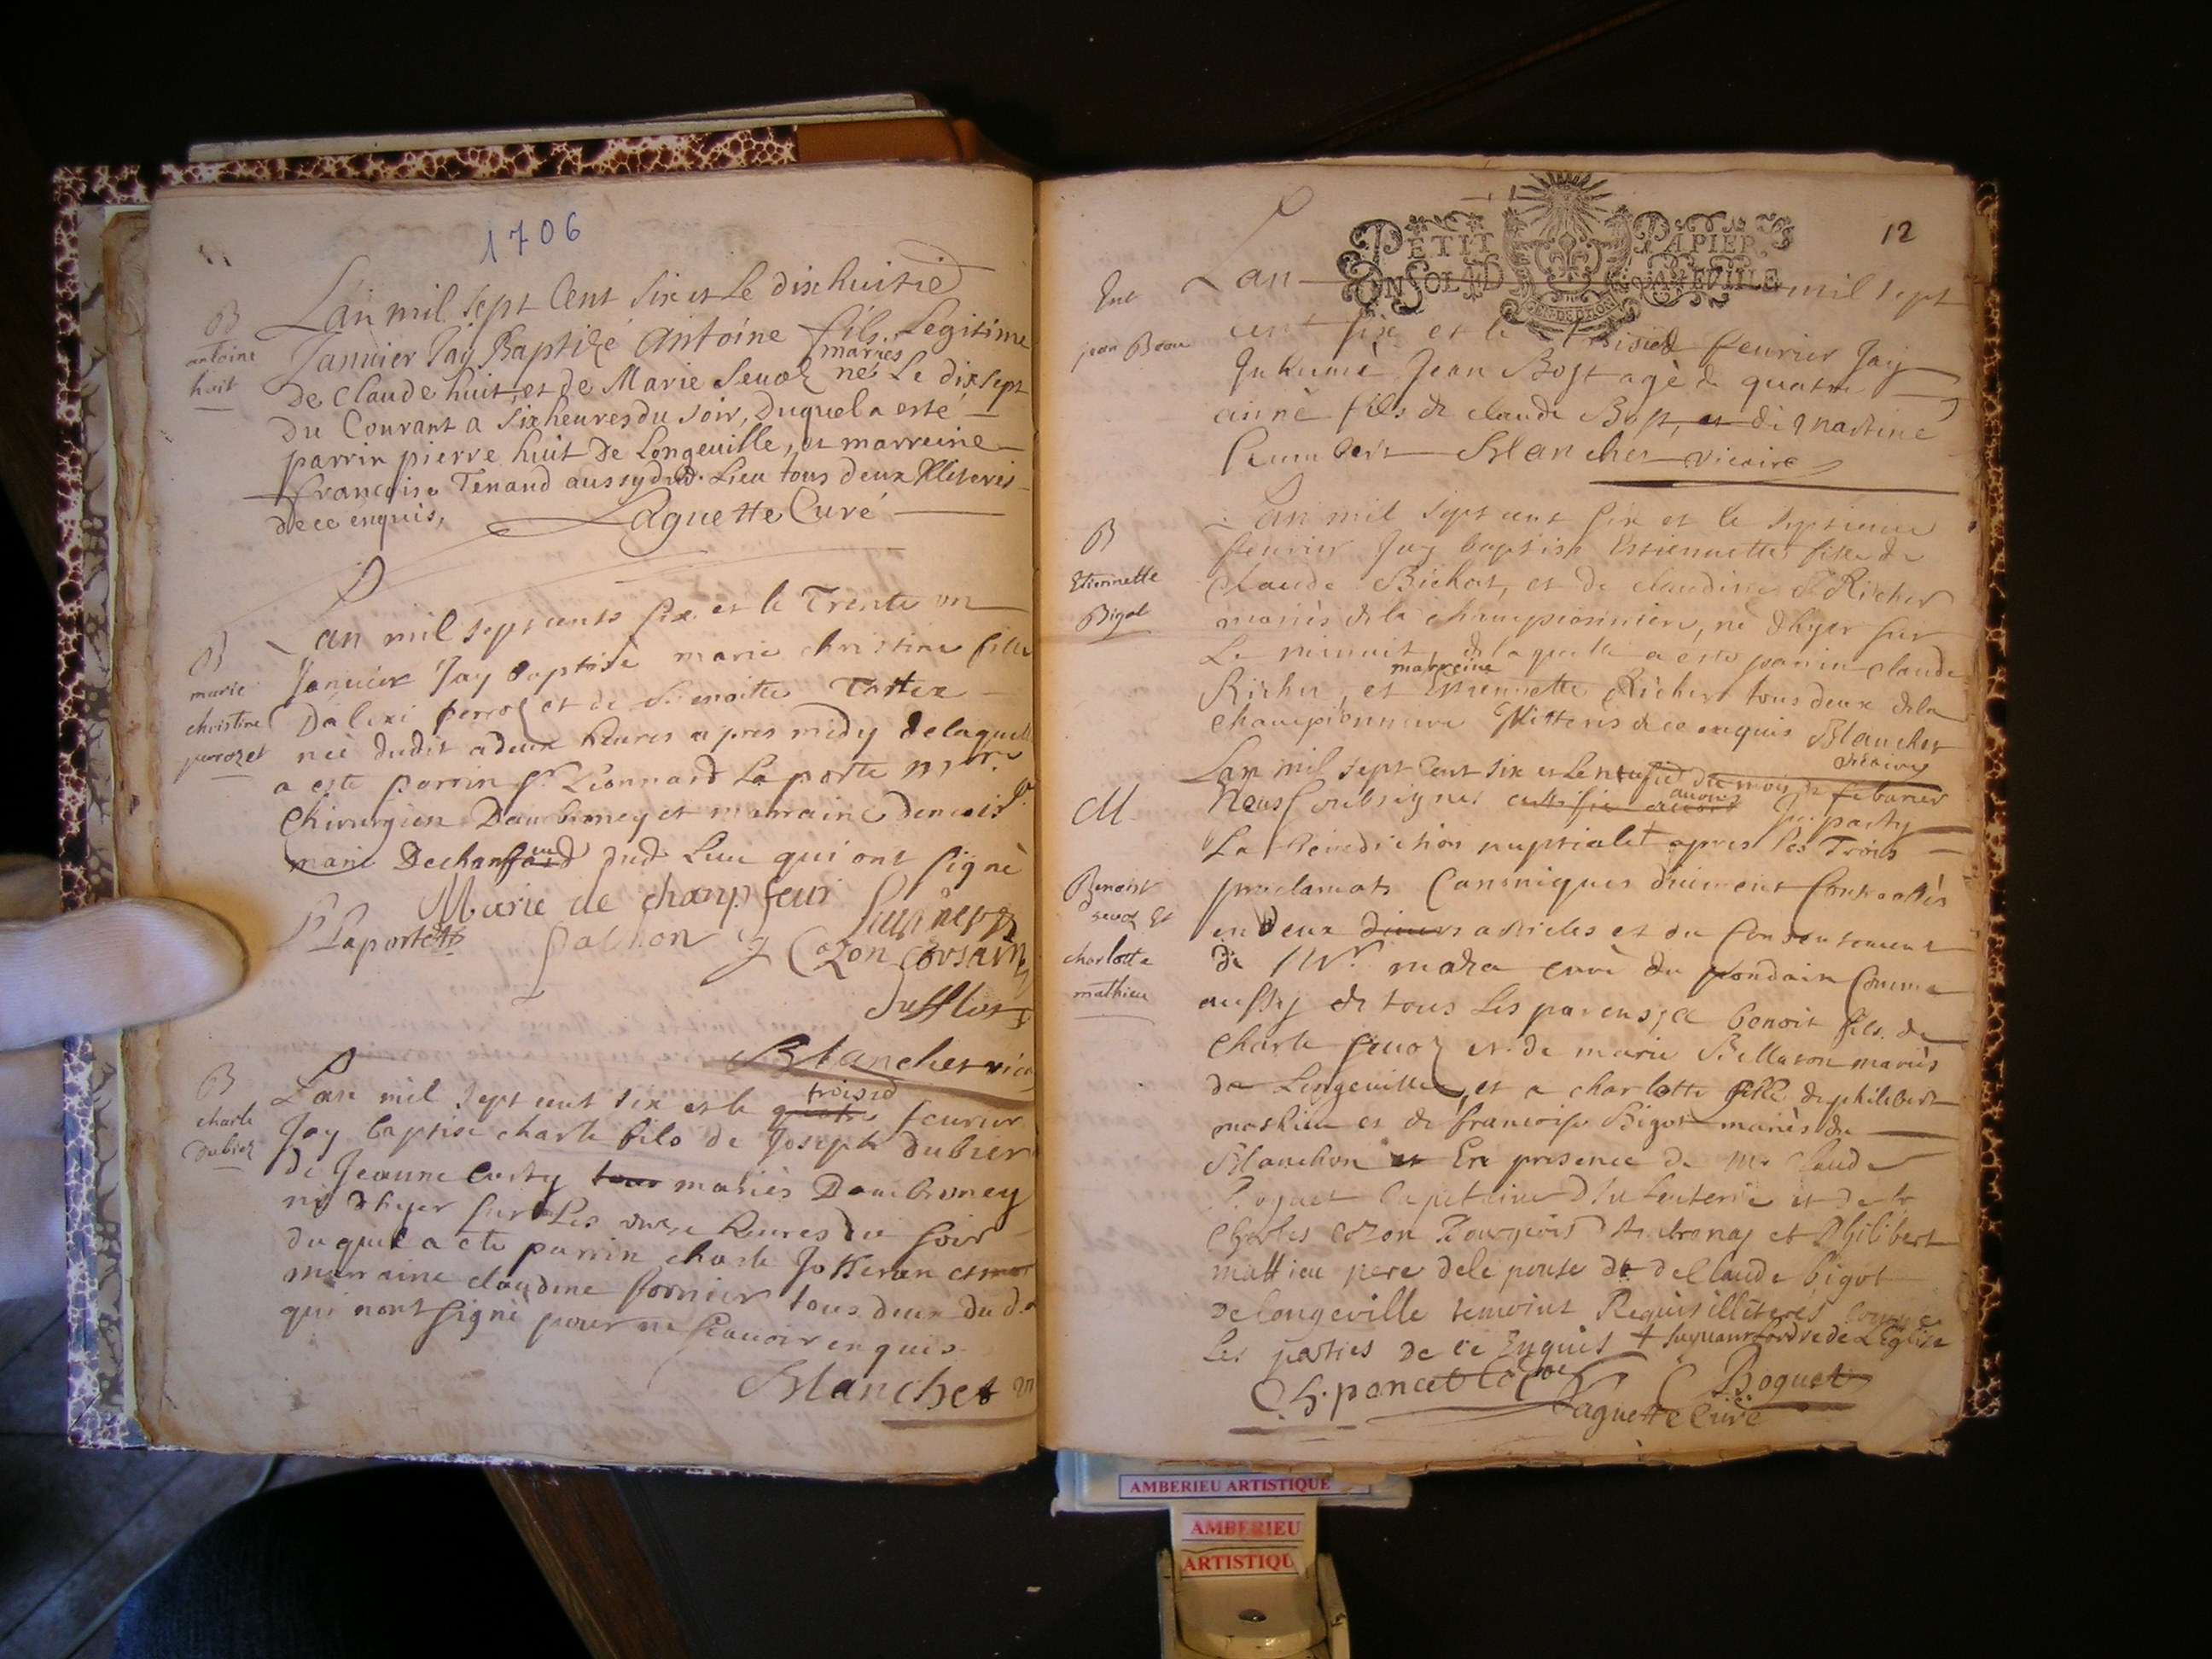 1706
B
antoine
huit
Lan mil sept Cent Six et Le dixhuitie
Janvier Jay Baptizé Antoine fils Legitime
mariés
De Claude huit, et de Marie Seuoz né Le dixsept
Du Courant a Six heures du Soir, Duquel a esté
parrin pierre huit De Longeuille, et marreine
francoise Tenand aussy dud. Lieu tous deux Illeterés
dece enquis,
Laguette Curé
B
marie
christine
perrozet
Lan mil sept cents six et le Trente un
Janvier Jay baptisé marie christine fille
Dalexi perroz et de Benoitte
neé dudit a deux heures apres midy delaquelle
a este parrin Sr Lionnard Laporte mre
Chirurgien Dambroney et marraine demoisle
marie Dechanfeur dud Lieu qui ont signé
Marie de chanpfeur
Laporte
J Cozon
Blanchet vic
B
charle
Dubiez
Lan mil sept cent six et le quatre troisie feurier
Jay baptise charle fils de Joseph Dubier
de Jeanne Custy tous mariés Dambroney
né dhyer sur Les onze heures du soir
duquel a ete parrin charle Jotteran et mar
marraine claudine fornier tous deux du d.
qui nont signé pour ne scauoir enquis
Blanchet
12
PETIT PAPIER
Ent
jean Beau
Lan mil sept
cent six et le troisied feurier Jay
Inhumé Jean Bost agé de quatre
année fils de claude Bost, et de martine
humbert Blanchet vicaire
B
Etiennette
Bigot
Lan mil sept cent six et le septieme
feurier Jay baptise Estiennette fille de
Claude Bichat, et de claudine Richer
mariés de la championniere, né dhyer sur
Le minuit, delaquelle a este parrin claude
marreine
Richer, et Estiennette Richer tous deux dela
championniere Illitterés dece enquis Blanchet
vicaire
M
Benoist
seuoz Et
charlotte
mathieu
Lan mil sept Cent six et Le neufie du mois de feburier
Nous soubsignes certifie avons avons Jmparty
La benediction nuptiale + apres les Trois
proclamats Canoniques duement Controllés
en deux diuers articles et du Consentement
de Mr. curé du pondain Comme
aussy de tous les parens, a benoit fils de
Charle seuoz et de marie Bellaton mariés
de Longeuille, et a charlotte fille de philibert
mathieu et de francoise Bigot mariés du
Blanchon et En presence de Mr Claude
Boguet Capitaine dInfenterie et de Sr
Charles Cozon Bourgeois dAmbronay et Philibert
mattieu pere delepouse de de Claude bigot
delongeville temoins Requis illeterés comme
Les parties de ce Enquis + suyuant Lordre de LEglise
Ch. poncet
C Boguet
Laguette Curé
AMBERIEU ARTISTIQUE
AMBERIEU
ARTISTIQU